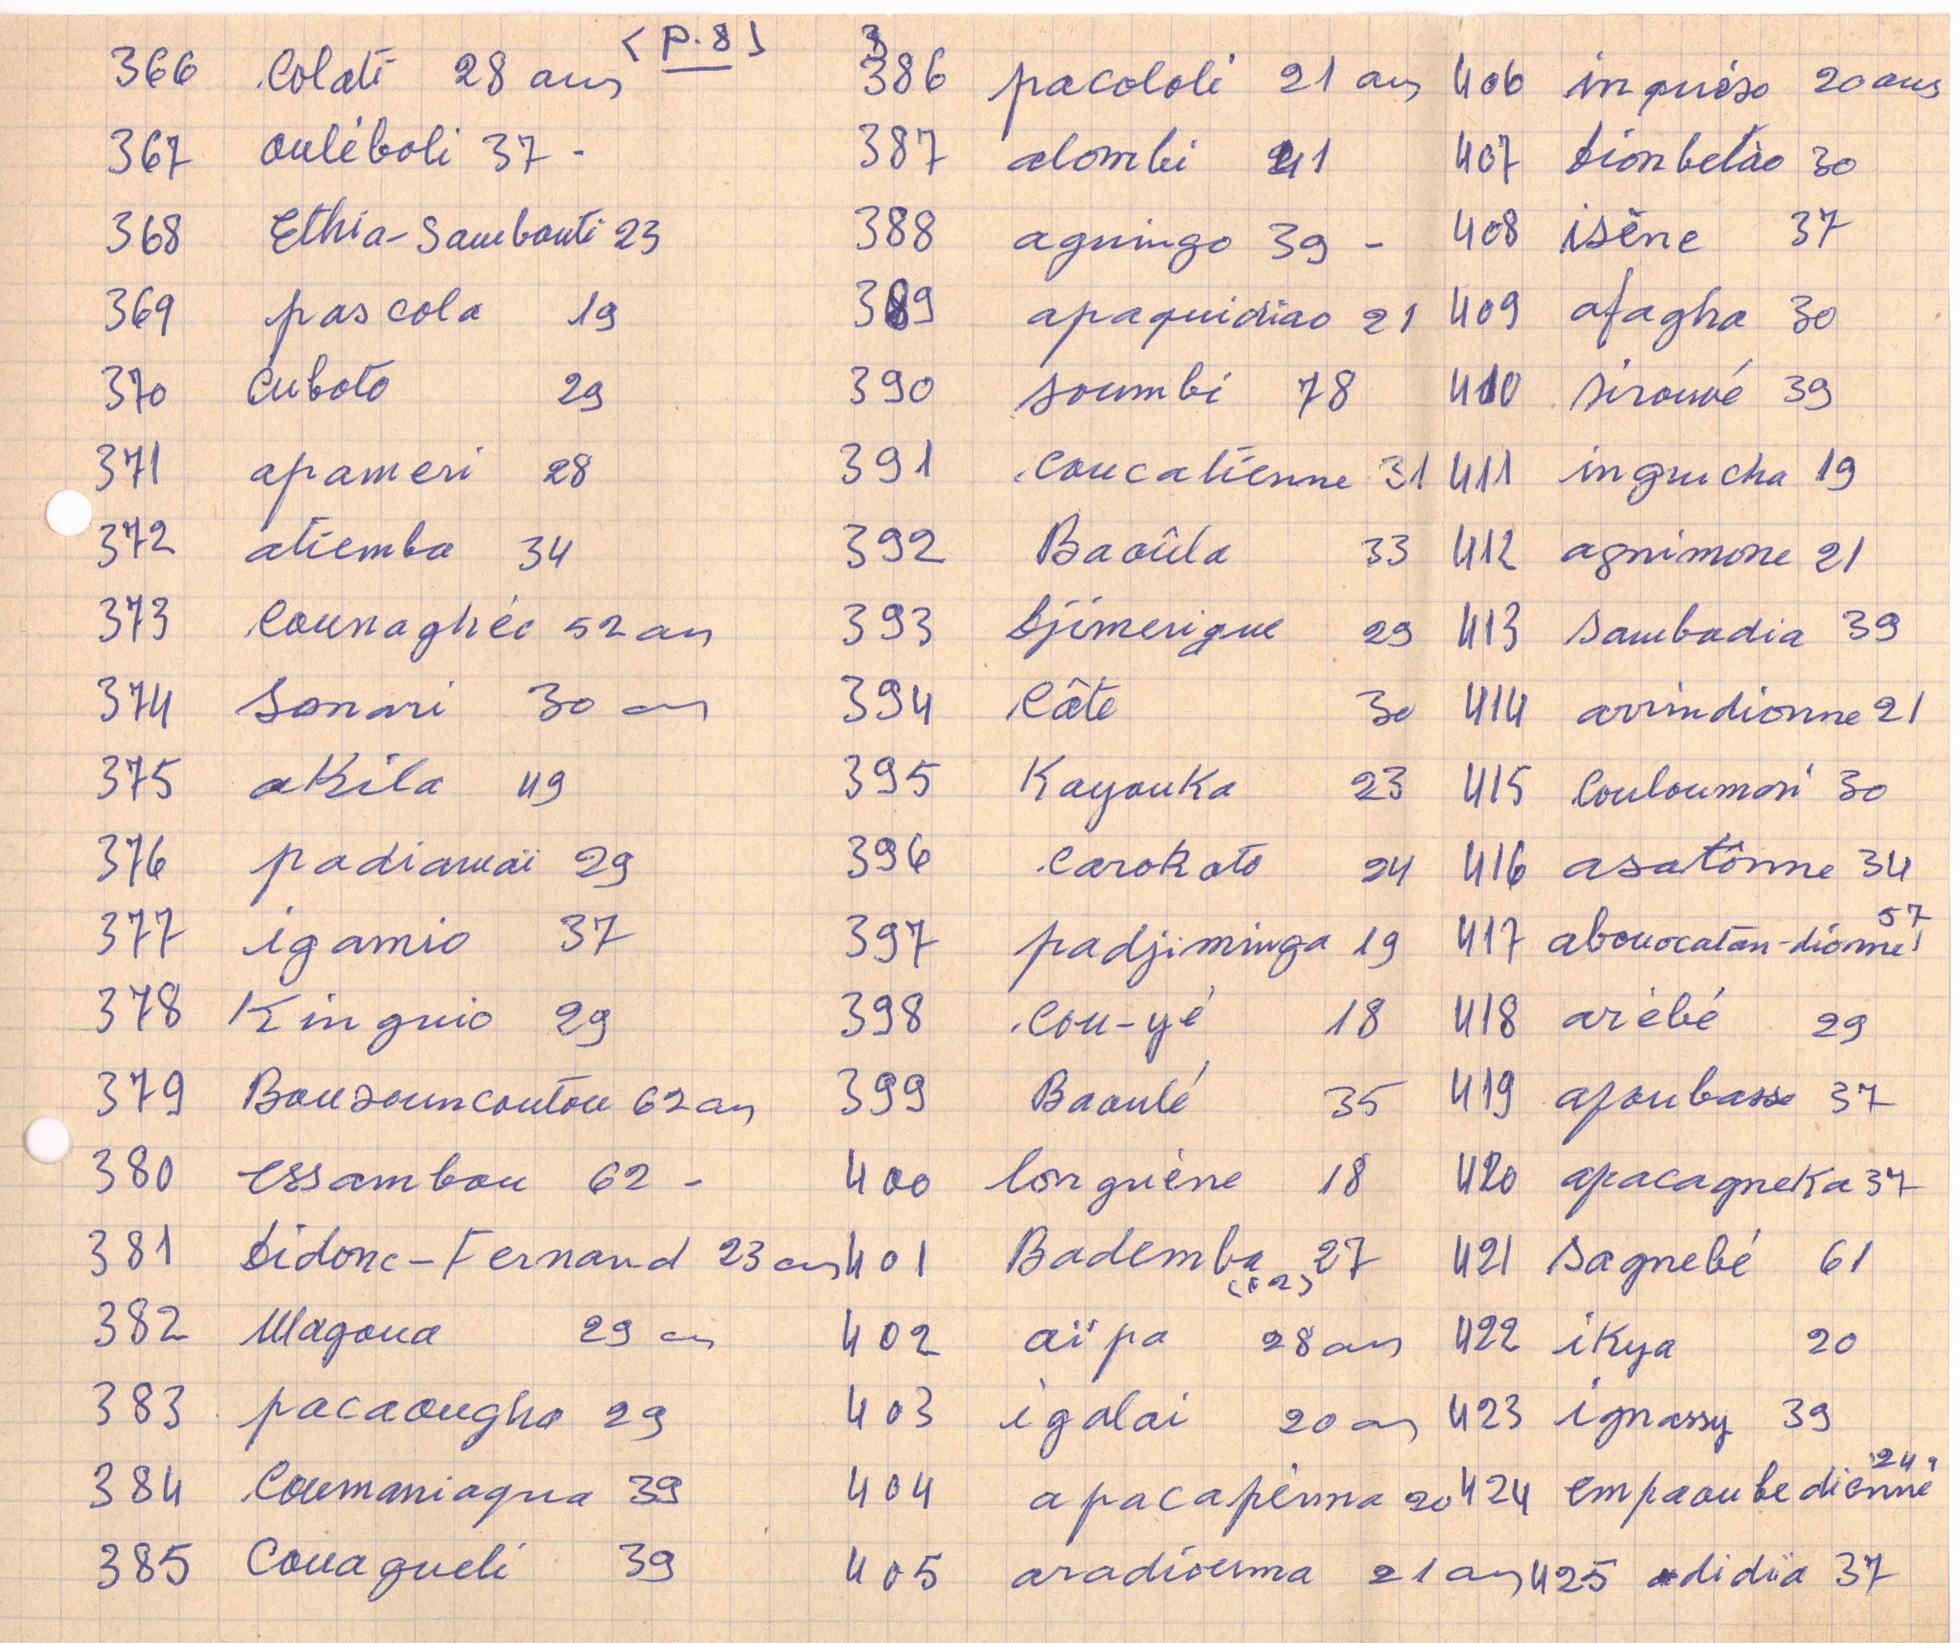 <p.8>
366 Colati 28 ans
367 ouléboli 37 -
368 Ethia-Sambouti 23
369 pascola 19
370 Cuboto 29
371 apameri 28
372 atiemba 34
373 Counaghéc 52 ans
374 Sonari 30 ans
375 akila 49
376 padiamaï 29
377 igamio 37
378 Kinguio 29
379 Bousouncoutou 62 ans
380 essambou 62 -
381 Didonc-Fernand 23 ans
382 Magoua 29 ans
383 pacaougha 29
384 Coumaniagna 39
385 Couagueli 39
386 pacololi 21 ans
387 alombi 41
388 agningo 39 -
389 apaquidiao 21
390 soumbi 78
391 Coucatienne 31
392 Baoûla 33
393 Djimerigue 29
394 Câte 30
395 Kayouka 23
396 Carokoto 24
397 padjiminga 19
398 Cou-yé 18
399 Baoulé 35
400 longuène 18
401 Bademba 27
(F2)
402 aïpa 28 ans
403 igalai 20 ans
404 apacapènna 20
405 aradiouma 21 ans
406 inquiéso 20 ans
407 Dionbetào 30
408 isène 37
409 afagha 30
410 sirouvé 39
411 inguicha 19
412 agnimone 21
413 sambadia 39
414 arrindionne 21
415 Couloumori 30
416 asatônne 34
417 abouocatan-dionne 57
418 arièbé 29
419 apoubasse 37
420 apacagneka 37
421 sagnebé 61
422 ikya 20
423 ignassy 39
424 empaoubedienne 24
425 adidïa 37